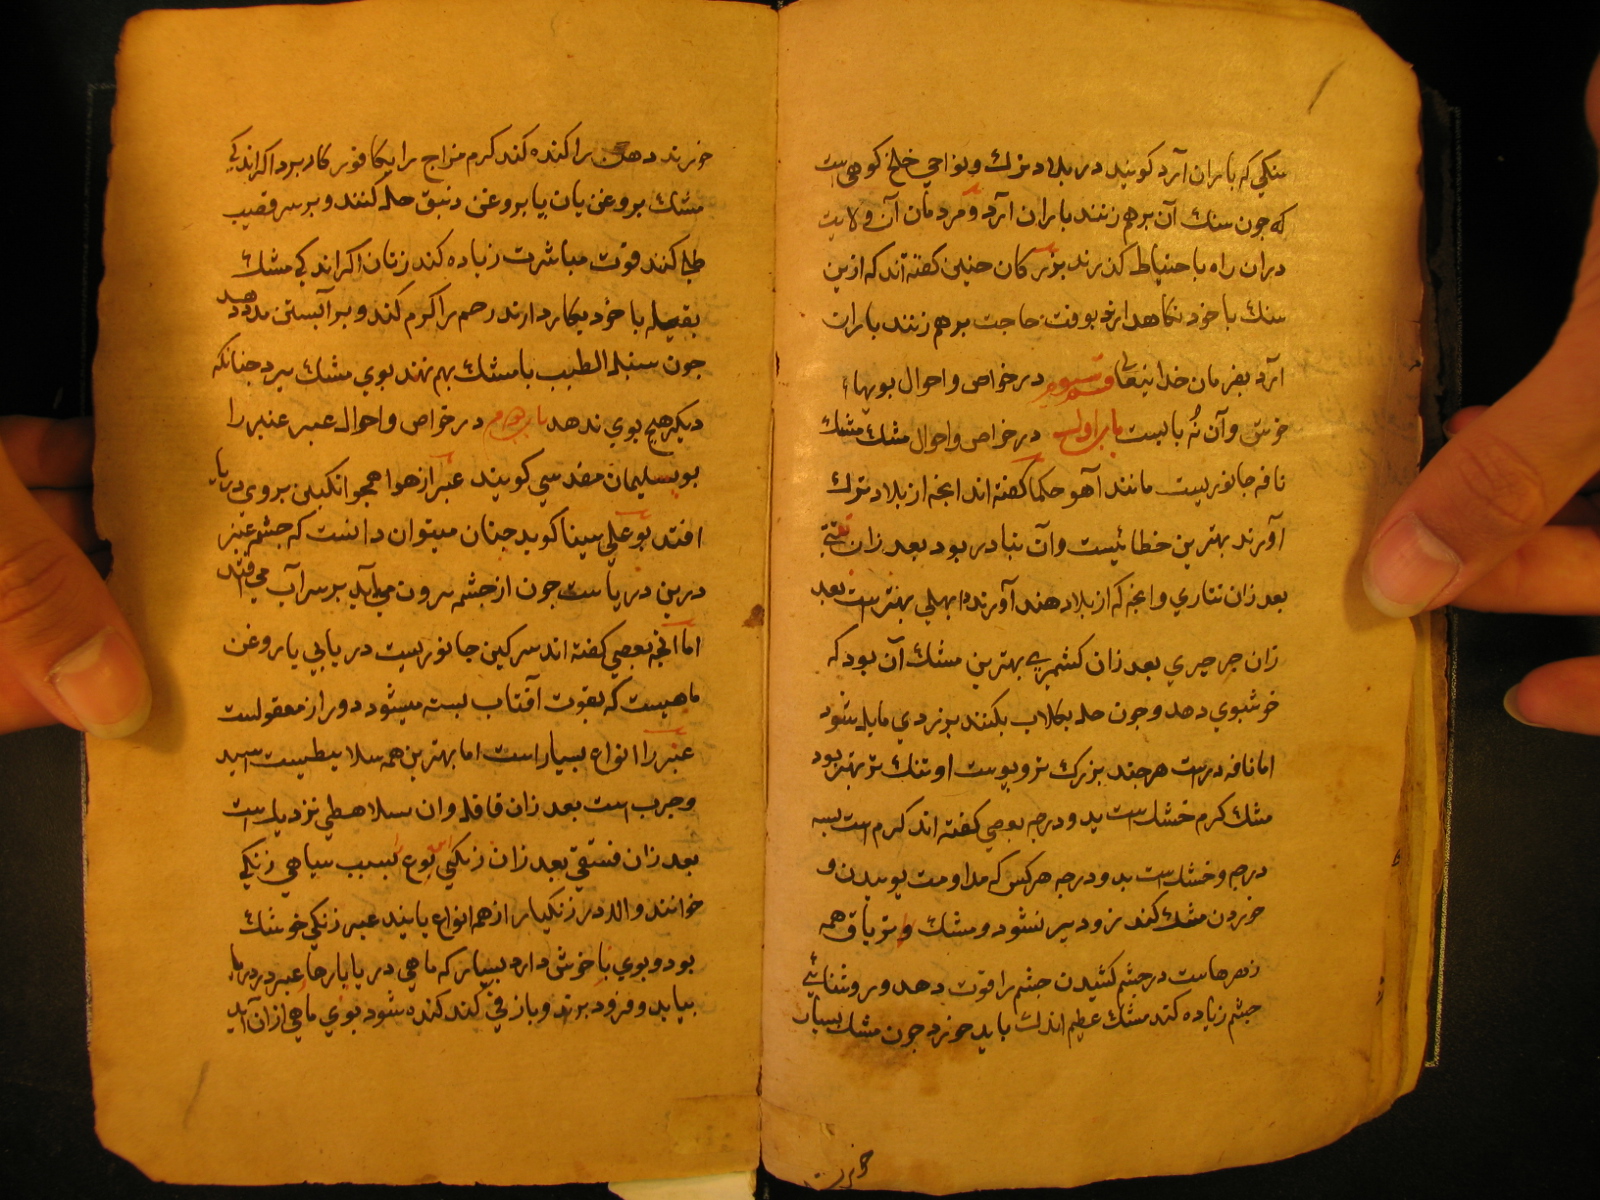 سنکی که باران آرد کویند در بلاد ترک و نواحی خلخ کوهیست
که جون سنک آن برهم زنند باران آرد و مردمان آن ولایت
دران راه باحتیاط کذرند بزرکان جنین کفته اند که ازین
سنک با خود نکاهدارند بوقت حاجت برهم زنند باران
آرد بفرمان خدایتعالی قسم سیوم در خواص و احوال بویهاء
خوش و آن نُه بابست باب اول در خواص و احوال مشک مشک
نافه جانوریست مانند آهو حکما کفته اند انجه از بلاد ترک
آورند بهترین خطائیست و آن بنادر بود بعد زان تبتی
بعد زان تتاری و انجه که از بلاد هند آورند نیپالی بهترست بعد
زان جرجیری بعد زان کشمیری بهترین مشک آن بود که
خوشبوی دهد و جون حل بکلاب بکنند بزردی مایل شود
اما نافه درست هرجند بزرک تر و پوست او تنک تر بهتر بود
مشک کرم خشک است بدو درجه بعضی کفته اند کرم است بسه
درجه و خشک است بدو درجه هرکس که مداومت بوییدن و
خوردن مشک کند زود پیر نشود و مشک تریاق همه
زهرهاست در جشم کشیدن جشم را قوت دهد و روشنائی
جشم زیاده کند مشک عظیم اندک باید خورد جون مشک بسیار
خورند
خورند دهن را کنده کند کرم مزاج را با کافور کار برد اکر اندکی
مشک بروغن بان یا بروغن زنبق حل کنند و بر سر قضیب
طلی کنند قوت مباشرت زیاده کند زنان اکر اندکی مشک
بفتیله با خود بکار دارند رحم را کرم کند و بر آبستن مدد دهد
جون سنبل الطیب با مشک بهم نهند بوی مشک ببرد جنانکه
دیکر هیج بوی ندهد باب دوم در خواص و احوال عنبر عنبر را
بوسلیمان مقدسی کویند عنبر از هوا همجو انکبین بروی دریا
افتد بوعلی سینا کوید جنان میتوان دانست که جشمه عنبر
درین دریاست جون از جشمه بیرون می آید بر سر آب می افتد
اما آنجه بعضی کفته اند سرکین جانوریست دریایی یا روغن
ماهیست که بقوت آفتاب بسته میشود دور از معقولست
عنبر را انواع بسیار است اما بهترین همه سلاهیطیست سپید
و جرب است بعد زان قاقله و ان بسلاهطی نزدیک است
بعد زان فستقی بعد زان زنکی این نوع بسبب سیاهی زنکی
خوانند و الا در زنکبار از همه انواع یابند عنبر زنکی خوشک
بود و بوی ناخوش دارد بسیار که ماهی دریا پارهاء عنبر در دریا
بیابد و فرو برد و باز قی کند کنده شود بوی ماهی ازان آید